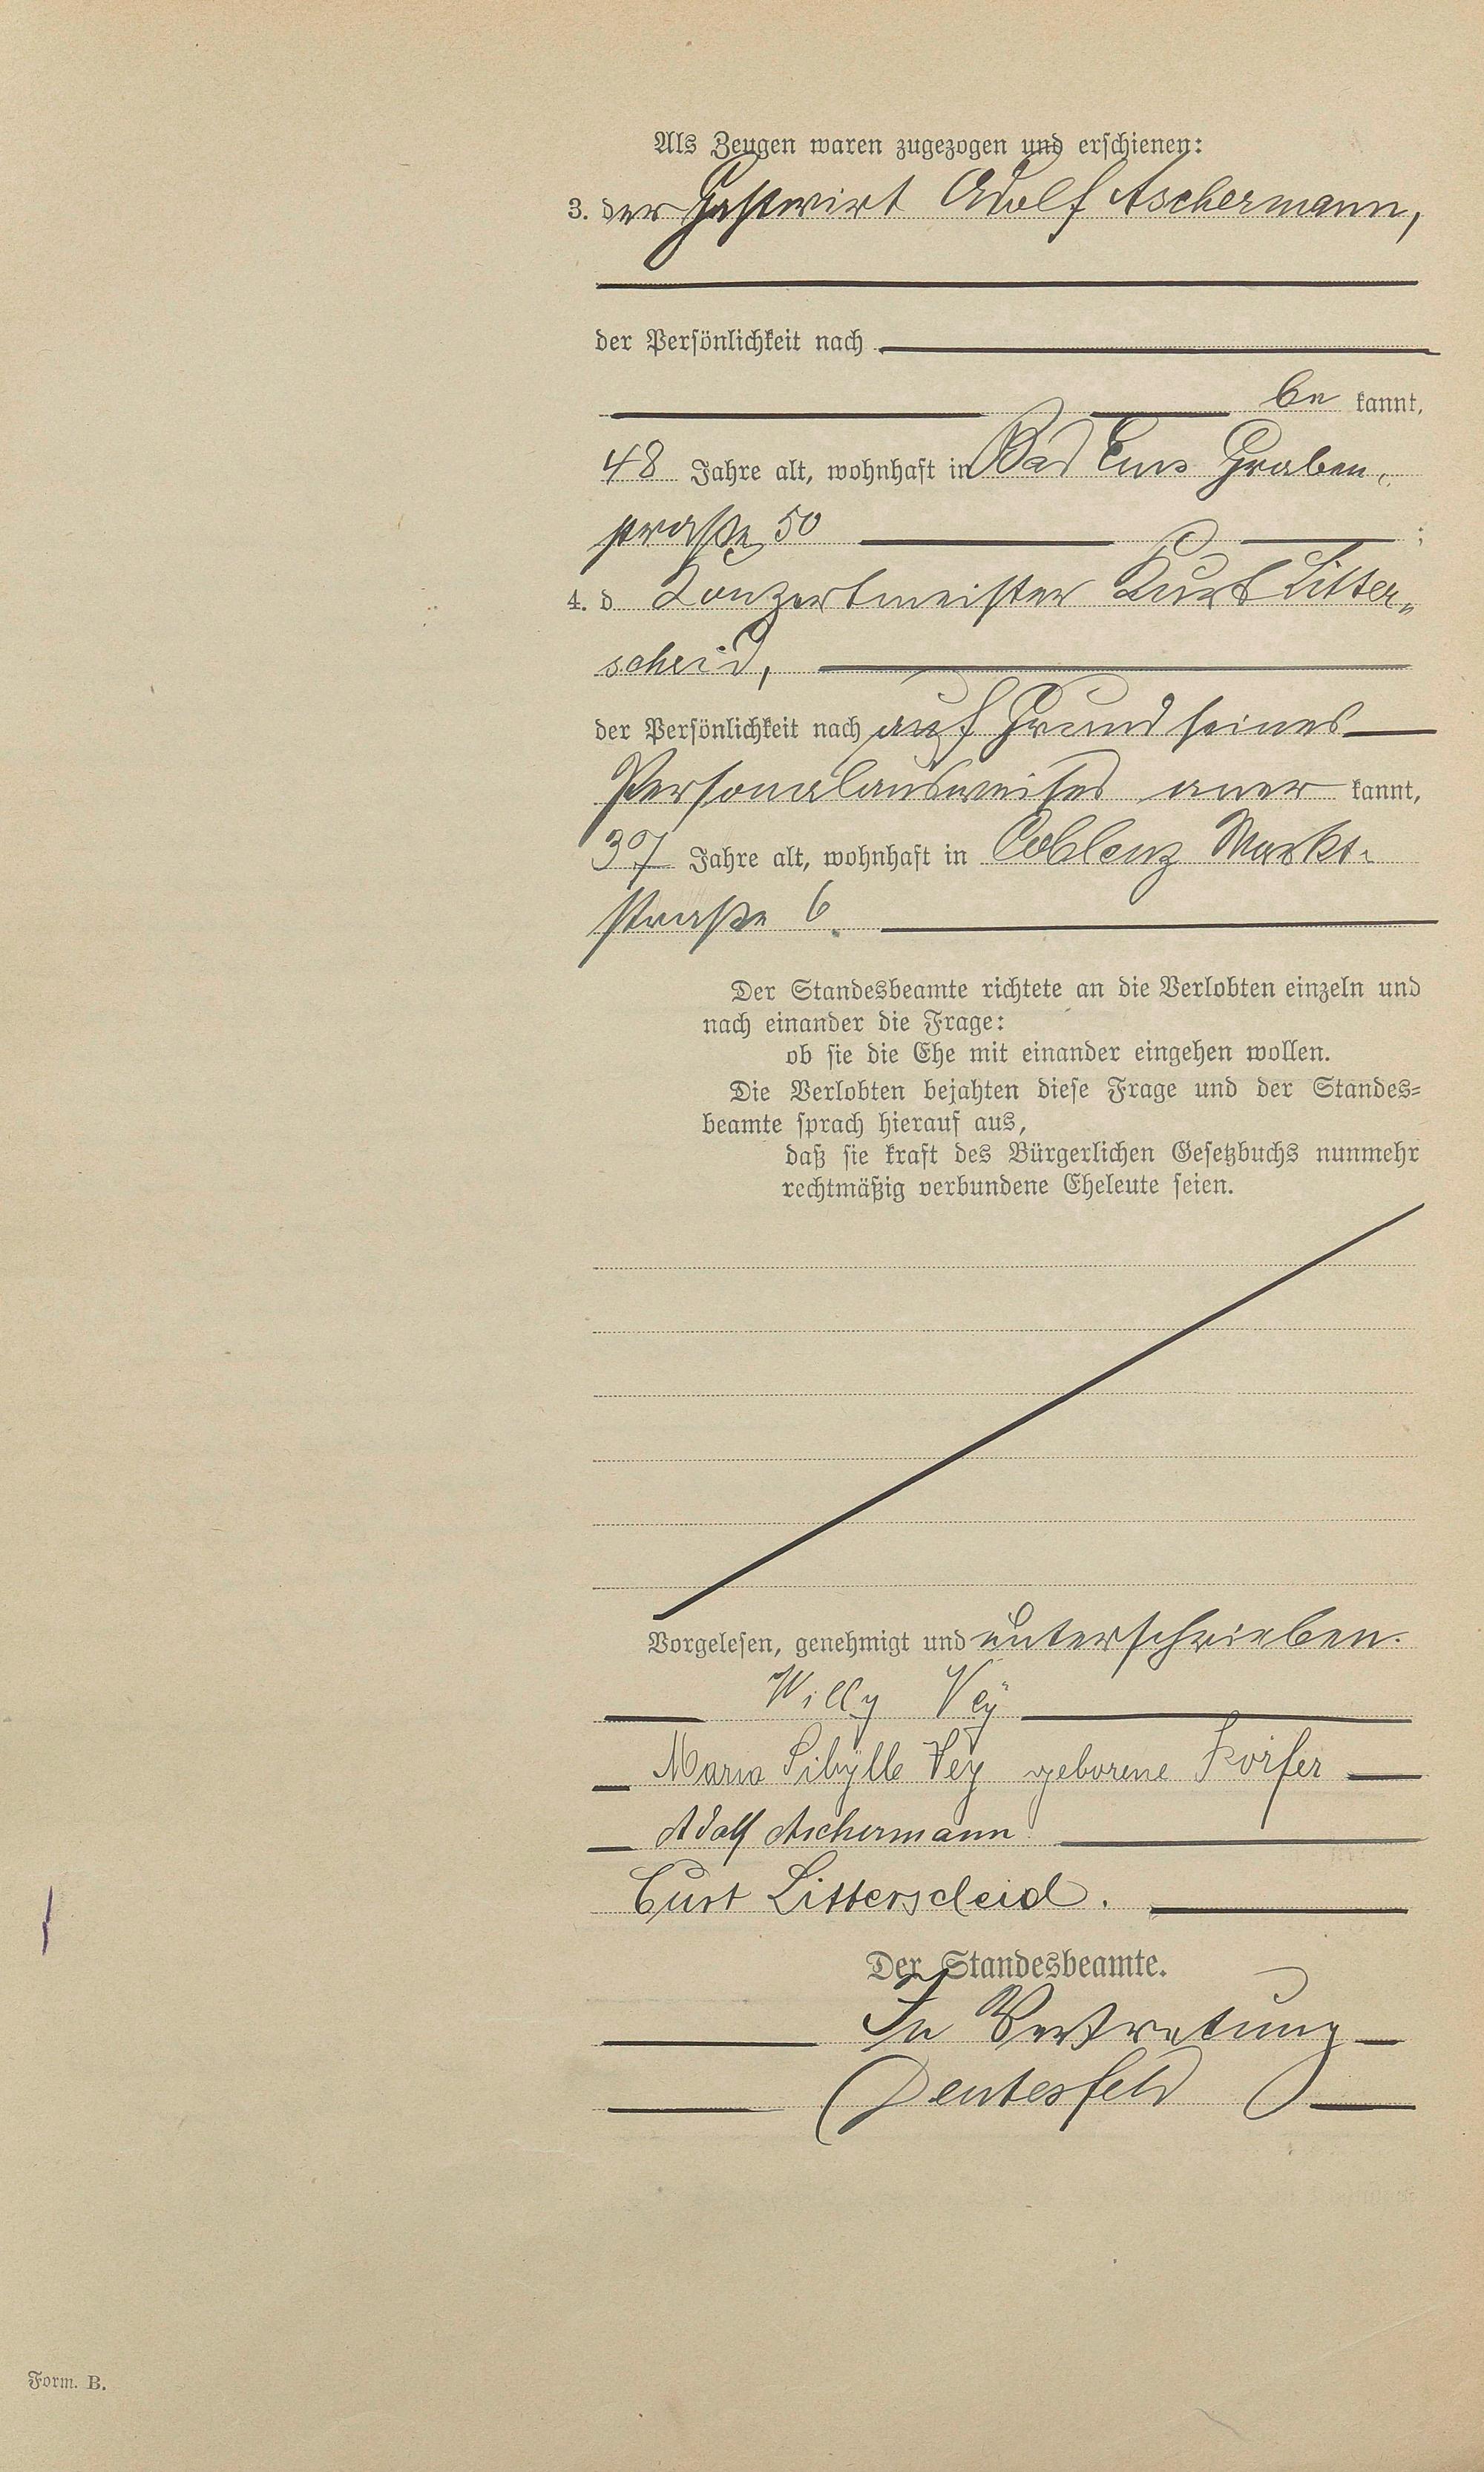 Als Zeugen waren zugezogen und erschienen:
3. der Gastwirt Adolf Aschermann,
der Persönlichkeit nach
be kannt,
48 Jahre alt, wohnhaft in Bad Ems Graben-
straße 50 ;
4. d Konzertmeister Kurt Litter„
scheid,
der Persönlichkeit nach auf Grund seines
Personalausweises aner kannt,
37 Jahre alt, wohnhaft in Coblenz Markt-
straße 6.
Der Standesbeamte richtete an die Verlobten einzeln und
nach einander die Frage:
ob sie die Ehe mit einander eingehen wollen.
Die Verlobten bejahten diese Frage und der Standes=
beamte sprach hierauf aus,
daß sie kraft des Bürgerlichen Gesetzbuchs nunmehr
rechtmäßig verbundene Eheleute seien.
Vorgelesen, genehmigt und unterschrieben.
Willy Veÿ
Maria Sibylle Vey geborene Körfer
Adolf Aschermann
Curt Litterscheid.
Der Standesbeamte.
In Vertretung
Deutesfeld
Form. B.